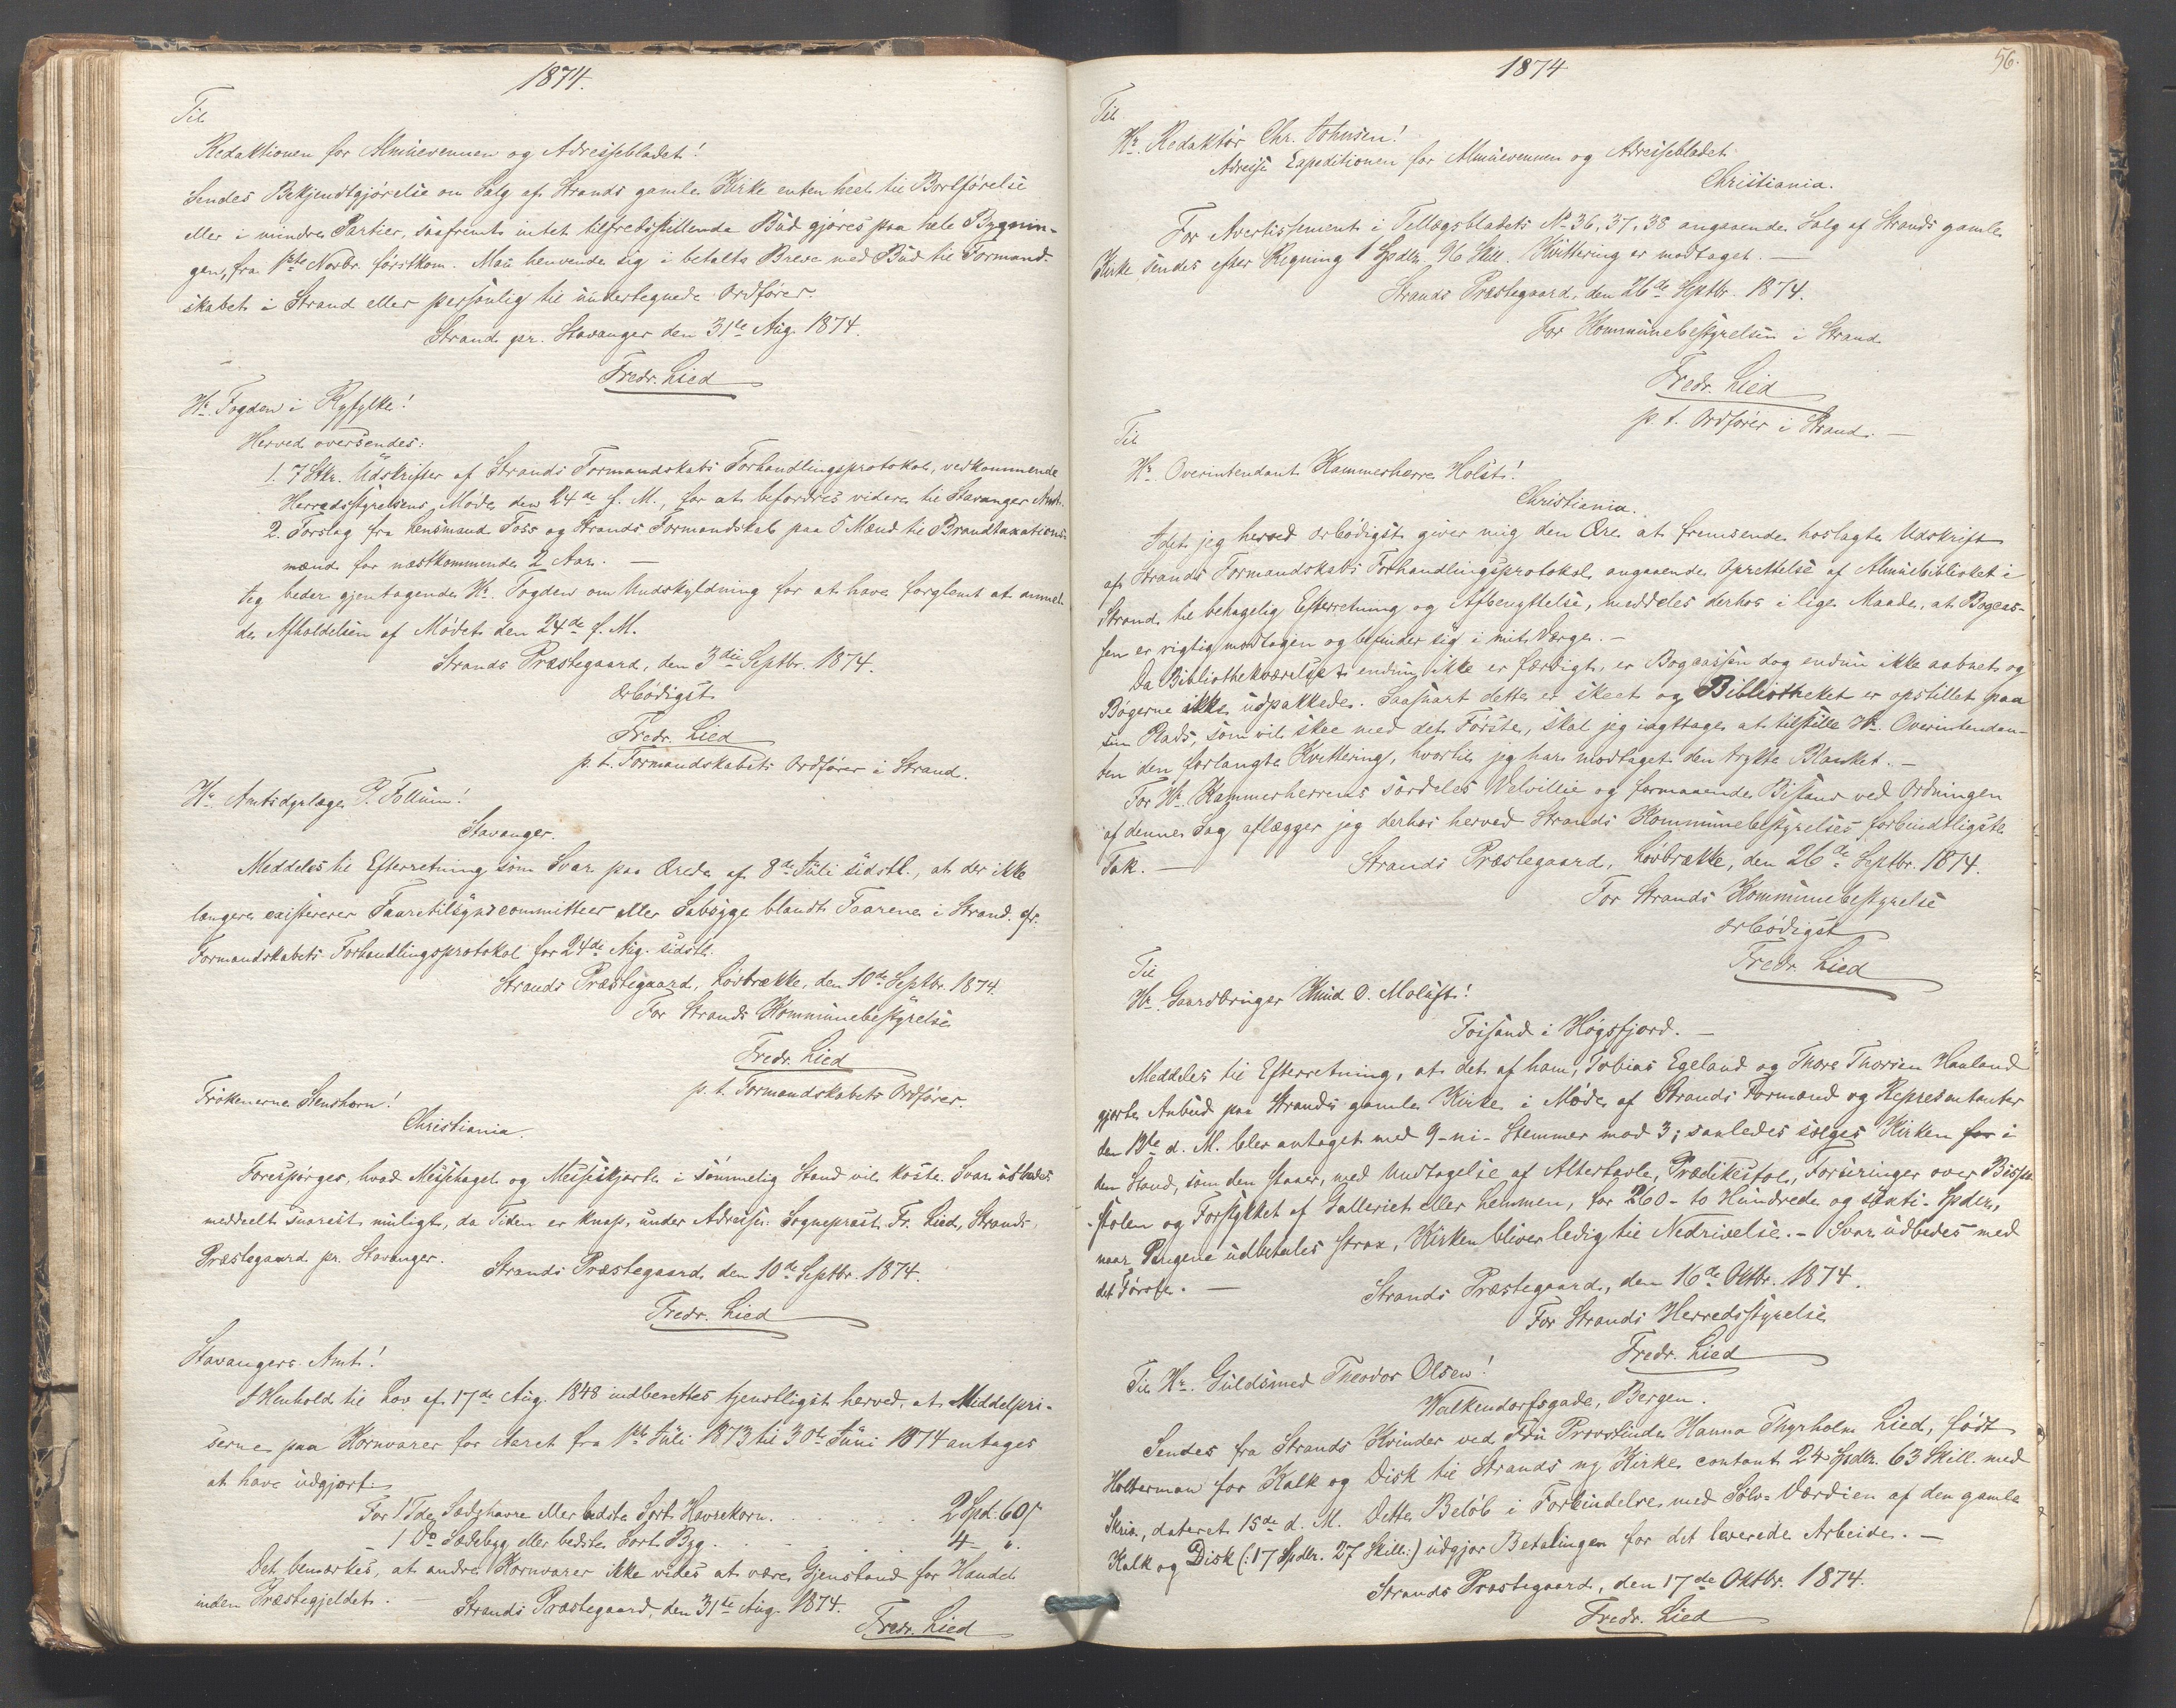 1874.
Til
Redaktionen for Almuevennen og Adressebladet!
Sendes Bekjendtgjørelse om Salg af Strands gamle Kirke enten heel til Bortførelse
eller i mindre Partier, saafremt intet tilfredsstillende Bud gjøres paa hele Bygnin-
gen, fra 1ste Novbr. førstkom. Man henvende sig i betalte Breve med Bud til Formand-
skabet i Strand eller personlig til undertegnede Ordfører.
Strand pr. Stavanger den 31te Aug. 1874.
Fredr. Lied
Hr. Fogden i Ryfylke!
Herved oversendes:
1. 7 Stkr. Udskrifter af Strands Formandskabs Forhandlingsprotokol, vedkommende
Herredsstyrelsens Møde den 24de f. M., for at befordres videre til Stavanger Amt.
2. Forslag fra Lensmand Foss og Strands Formandskab paa 5 Mænd til Brandtaxations-
mænd for næstkommende 2 Aar. —
Jeg beder gjentagende Hr. Fogden om Undskyldning for at have forglemt at anmel-
de Afholdelsen af Mødet den 24de f. M.
Strands Præstegaard, den 3die Septbr. 1874.
Ærbødigst
Fredr. Lied
p. t. Formandskabets Ordfører i Strand.
Hr. Amtsdyrlæge P. Follum!
Stavanger.
Meddeles til Efterretning som Svar paa Ærede af 8de Juli sidstl., at der ikke
længere existerer Faaretilsynscommitteer eller Skabsyge blandt Faarene i Strand. cfr.
Formandskabets Forhandlingsprotokol for 24de Aug. sidstl.
Strands Præstegaard, Løvbrække, den 10de Septbr. 1874.
For Strands Kommunebestyrelse
Fredr. Lied
p. t. Formandskabets Ordfører.
Frøkenerne Stenshorn!
Christiania.
Forespørges, hvad Messehagel og Messeskjorte i sømmelig Stand vil koste. Svar udbedes
meddeelt snarest muligt, da Tiden er knap, under Adresse: Sognepræst Fr. Lied, Strands
Præstegaard pr. Stavanger.
Strands Præstegaard den 10de Septbr. 1874.
Fredr. Lied
Stavangers Amt!
I Henhold til Lov af 17de Aug. 1848 indberettes tjenstligst herved, at Middelpri-
serne paa Kornvarer for Aaret fra 1ste Juli 1873 til 30te Juni 1874 antages
at have udgjort:
For 1 Tde Sædehavre eller bedste Sort Havrekorn . . . . . . 2 Spd. 60 s
— 1 Do Sædebyg eller bedste Sort Byg . . . . . . 4 — ".
Det bemærkes, at andre Kornvarer ikke vides at være Gjenstand for Handel
inden Præstegjeldet. —
Strands Præstegaard, den 31te Aug. 1874.
Fredr. Lied
1874
56.
Til
Hr. Redaktør Chr. Johnsen!
Adresse Expeditionen for Almuevennen og Adressebladet
Christiania.
For Avertissement i Tillægsbladets No 36, 37, 38 angaaende Salg af Strands gamle
Kirke sendes efter Regning 1 Spdlr. 96 Skill. Kvittering er modtaget. —
Strands Præstegaard, den 26de Septbr. 1874.
For Kommunebestyrelsen i Strand
Fredr. Lied
p. t. Ordfører i Strand. —
Til
Hr. Overintendant Kammerherre Holst!
Christiania.
Idet jeg herved ærbødigst giver mig den Ære at fremsende hoslagte Udskrift
af Strands Formandskabs Forhandlingsprotokol angaaende Oprettelse af Almuebibliothek i
Strand til behagelig Efterretning og Afbenyttelse, meddeles derhos i lige Maade, at Bogcas-
sen er rigtig modtagen og befinder sig i mit Værge. —
Da Bibliothekværelset endnu ikke er færdigt, er Bogcassen dog endnu ikke aabnet og
Bøgerne ikke udpakkede. Saasnart dette er skeet og Bibliotheket er opstillet paa
sin Plads, som vil skee med det Første, skal jeg iagttage at tilstille Hr. Overintendan-
ten den forlangte Kvittering, hvortil jeg har modtaget den trykte Blanket. —
For Hr. Kammerherrens særdeles Velvillie og formaaende Bistand ved Ordningen
af denne Sag aflægger jeg derhos herved Strands Kommunebestyrelses forbindtligste
Tak. —
Strands Præstegaard, Løvbrække, den 26de Septbr. 1874.
For Strands Kommunebestyrelse
ærbødigst
Fredr. Lied
Til
Hr. Gaardbruger Knud O. Molaug!
Foisand i Høgsfjord. —
Meddeles til Efterretning, at det af ham, Tobias Egeland og Thore Thorsen Hauland
gjorte Anbud paa Strands gamle Kirke i Møde af Strands Formænd og Repræsentanter
den 13de d. M. blev antaget med 9 - ni - Stemmer mod 3; saaledes sælges Kirken for i
den Stand, som den staaer, med Undtagelse af Altertavle, Prædikestol, Forsiringer over Bispe-
stolen og Forstykket af Galleriet eller Lemmen, for 260 - to Hundrede og sexti - Spdlr.,
naar Pengene udbetales strax, Kirken bliver ledig til Nedrivelse. — Svar udbedes med
det Første. —
Strands Præstegaard, den 16de Oktbr. 1874.
For Strands Herredsstyrelse
Fredr. Lied
Til Hr. Guldsmed Theodor Olsen!
Walkendorfsgade, Bergen.
Sendes fra Strands Kvinder ved Fru Provstinde Hanna Thyrholm Lied, født
Holterman for Kalk og Disk til Strands ny Kirke contant 24 Spdlr. 63 Skill. med
Skriv, dateret 15de d. M. Dette Beløb i Forbindelse med Sølv-Værdien af den gamle
Kalk og Disk (: 17 Spdlr. 27 Skill :) udgjør Betalingen for det leverede Arbeide. —
Strands Præstegaard, den 17de Oktbr. 1874.
Fredr. Lied